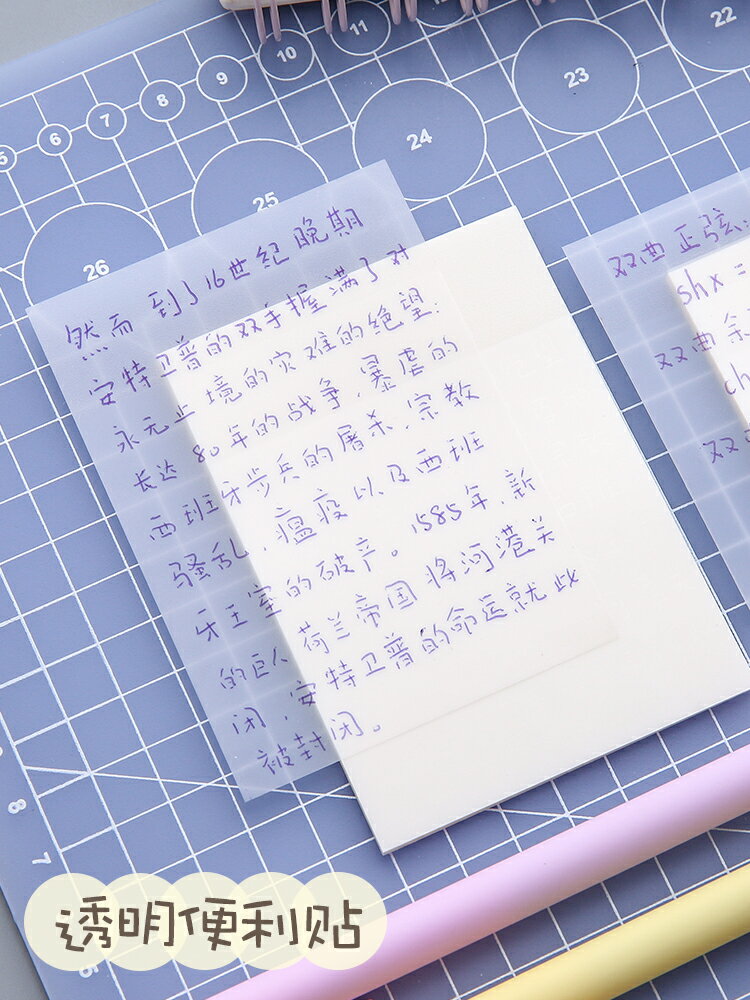 10
11
12
22
5
6
7
8
9
23
24
25
26
然而 到了16世纪晚期
安特卫普的双手握满了对
永无止境的灾难的绝望:
长达80年的战争,暴虐的
西班牙步兵的屠杀,宗教
骚乱,瘟疫以及西班
牙王室的破产。1585年,新
的巨人荷兰帝国将河港关
闭,安特卫普的命运就此
被封闭。
双曲正弦
shx =
双曲余
ch
双
8
7
5
透明便利贴